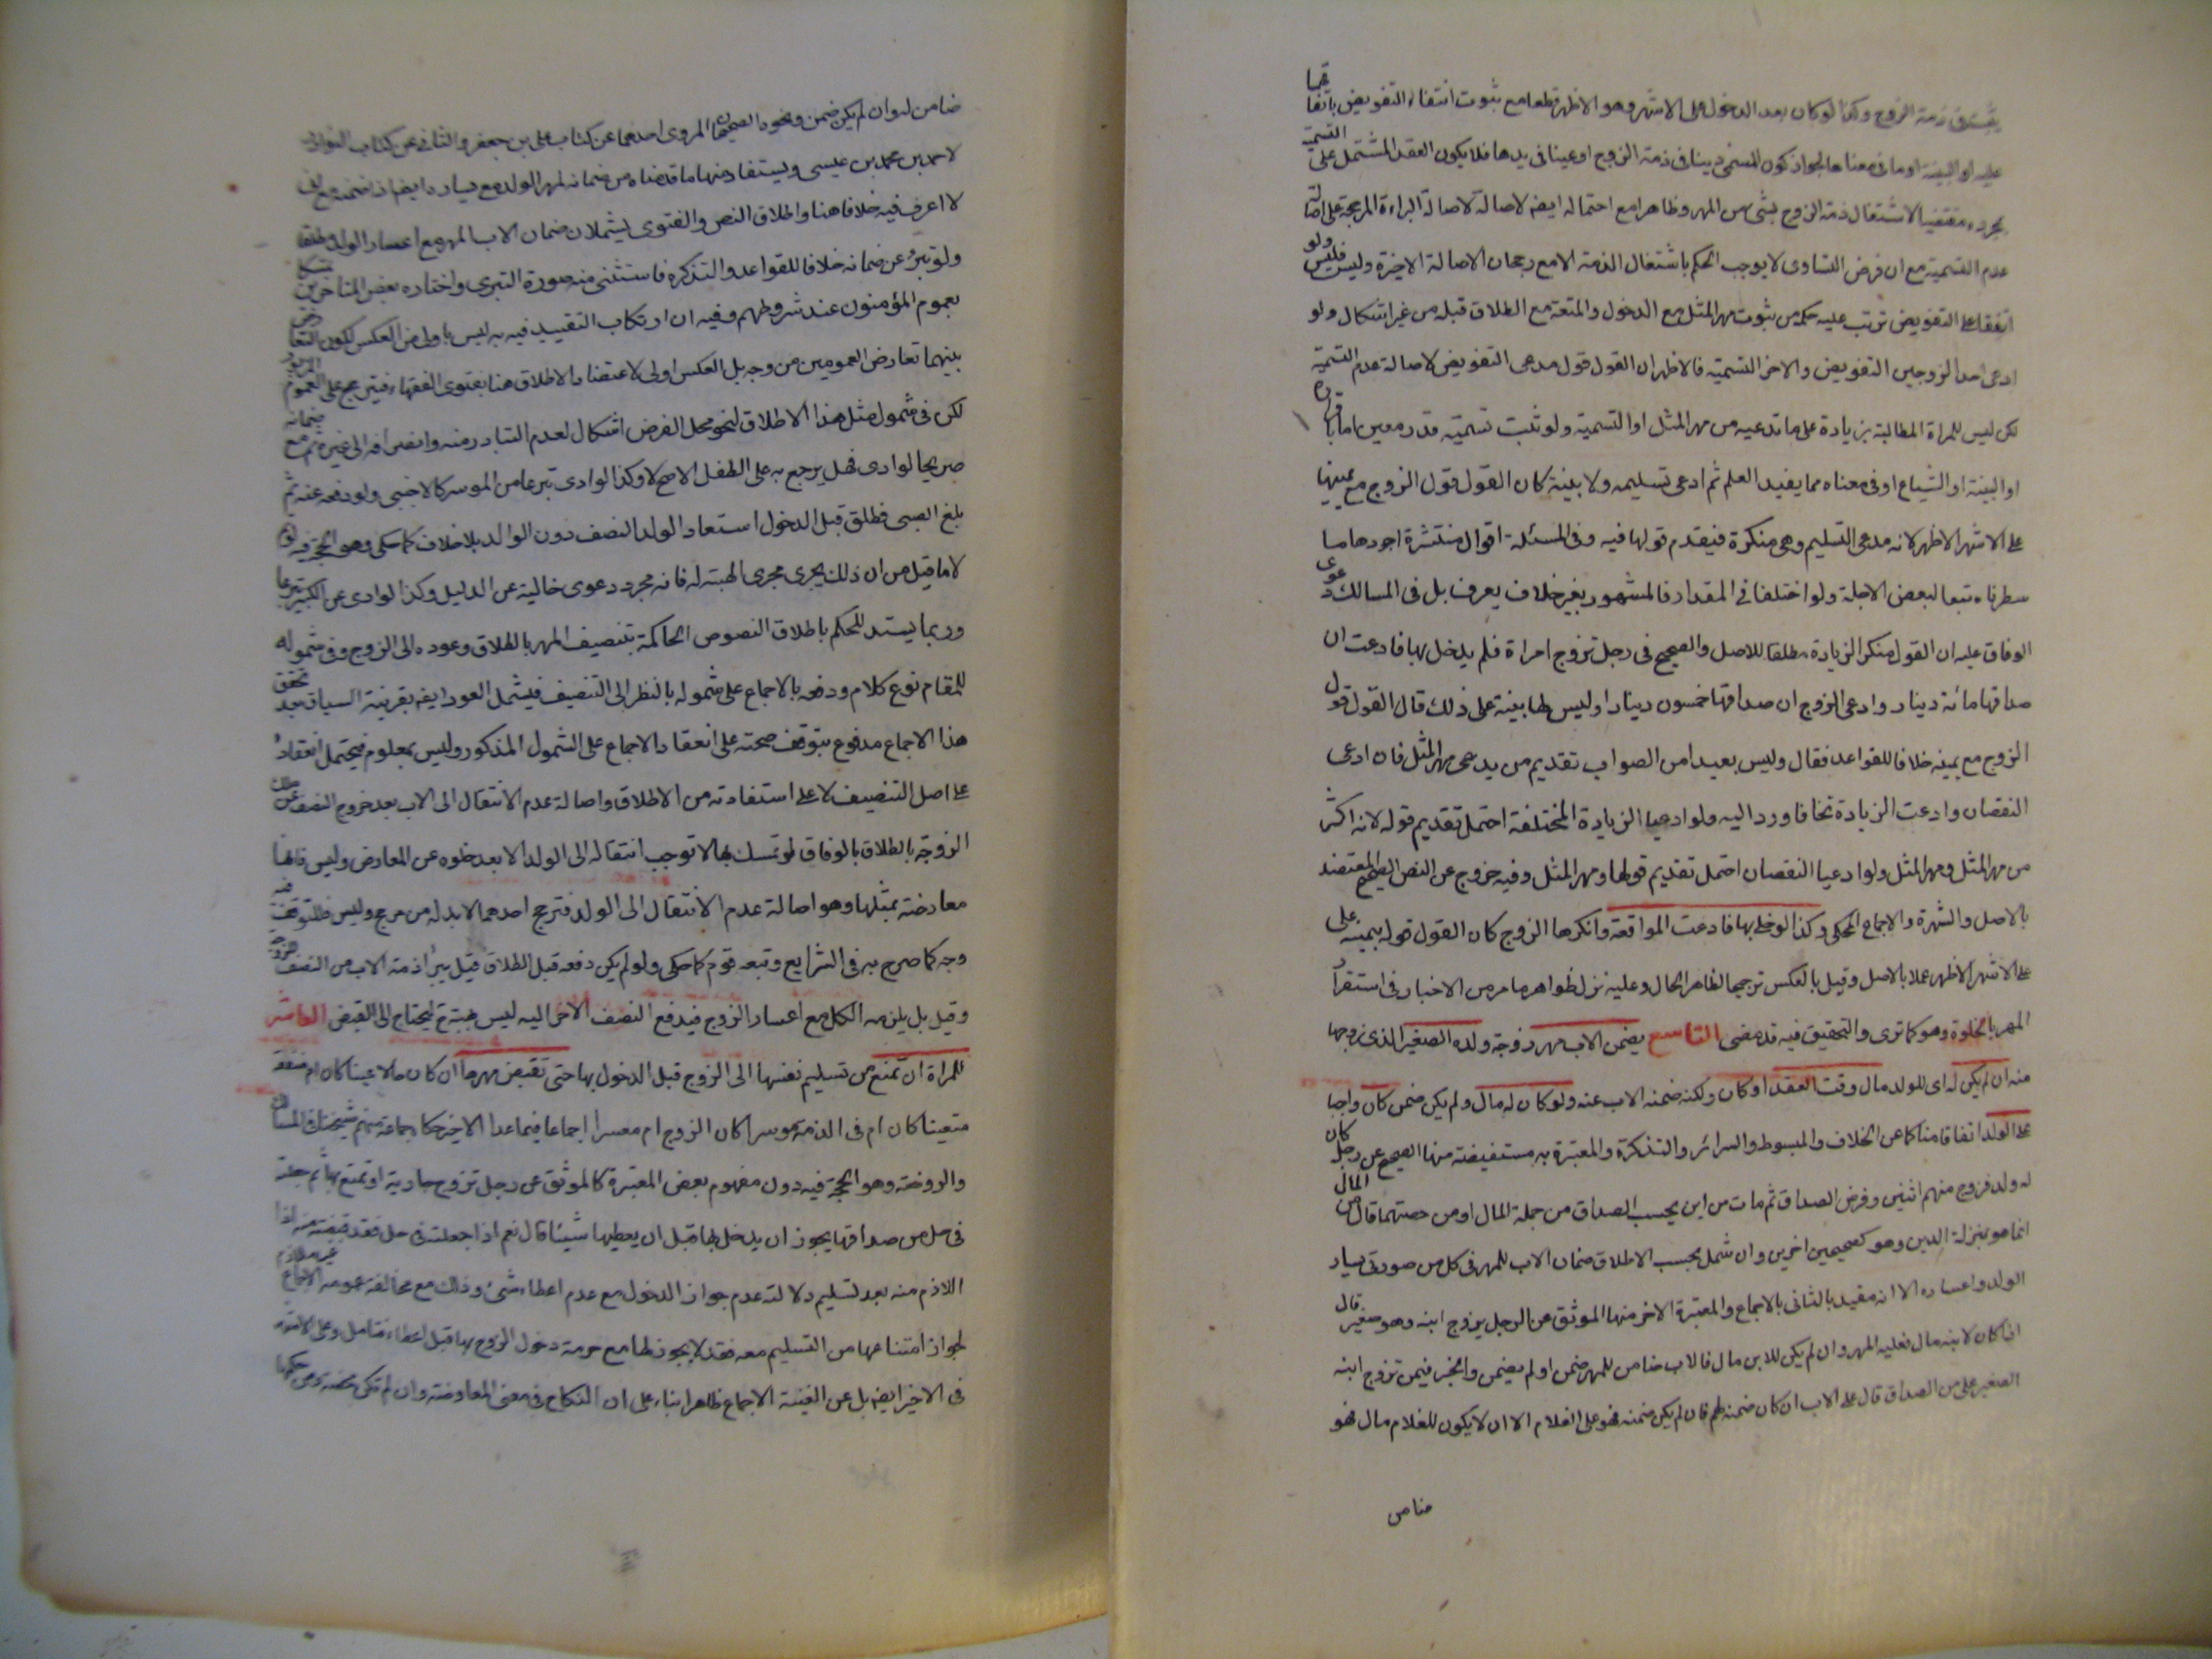 يقتضى ذمة الزوج وكذا لو كان بعد الدخول على الاشهر وهو الاظهر قطعا مع ثبوت انتفاء التفويض باتفاقهما
عليه او البينة او ما فى معناها لجواز كون المسمى دينا فى ذمة الزوج او عينا فى يدها فلا يكون العقد المشتمل على التسمية
بمجرده مقتضيا لاشتغال ذمة الزوج بشئ من المهر وظاهرا مع احتماله ايضا لاصالة لاصالة البراءة المرجحة على اصالة
عدم التسمية مع ان فرض التساوى لا يوجب الحكم باشتغال الذمة الا مع رجحان الاصالة الاخيرة وليس فليس ولو
اتفقا على التفويض ترتب عليه حكمه من ثبوت مهر المثل مع الدخول والمتعة مع الطلاق قبله من غير اشكال ولو
ادعى احد الزوجين التفويض والاخر التسمية فالاظهر ان القول قول مدعى التفويض لاصالة عدم التسمية
لكن ليس للمراة المطالبة بزيادة على ما تدعيه من مهر المثل او التسمية ولو ثبت تسمية قدر معين اما باقراره
او البينة او الشياع او فى معناه مما يفيد العلم ثم ادعى تسليمه ولا بينة كان القول قول الزوج مع يمينها
على الاشهر الاظهر لانه مدعى التسليم وهى منكرة فيقدم قولها فيه وفى المسئلة اقوال منتشرة اجودها ما
سطرناه تبعا لبعض الاجلة ولو اختلفا فى المقدار فالمشهور بغير خلاف يعرف بل فى المسالك دعوى
الوفاق عليه ان القول منكر الزيادة مطلقا للاصل والصحيح فى رجل تزوج امراة فلم يدخل بها فادعت ان
صداقها مائة دينار وادعى الزوج ان صداقها خمسون دينارا وليس لها بينة على ذلك قال القول قول
الزوج مع يمينه خلافا للقواعد فقال وليس بعيدا من الصواب تقديم من يدعى مهر المثل فان ادعى
النقصان وادعت الزيادة تخالفا ورد اليه ولو ادعيا الزيادة المختلفة احتمل تقديم قوله لانه اكثر
من مهر المثل ومهر المثل ولو ادعيا النقصان احتمل تقديم قولها ومهر المثل وفيه خروج عن النص الصحيح المعتضد
بالاصل والشهرة والاجماع المحكى وكذا لو خلى بها فادعت المواقعة وانكرها الزوج كان القول قوله بيمينه على
على الاشهر الاظهر عملا بالاصل وقيل بالعكس ترجيحا لظاهر الحال وعليه نزل ظواهر ما مر من الاخبار فى استقرار
المهر بالخلوة وهو كما ترى والتحقيق فيه قد مضى التاسع يضمن الاب مهر زوجة ولده الصغير الذى زوجها
منه ان لم يكن له اى للولد مال وقت العقد او كان ولكنه ضمنه الاب عنه ولو كان له مال ولم يكن ضمن كان واجبا
على الولد اتفاقا منا كما عن الخلاف والمبسوط والسرائر والتذكرة والمعتبرة به مستفيضة منها الصحيح عن رجل كان
له ولد فزوج منهم اثنين وفرض الصداق ثم مات من اين يحسب الصداق من جملة المال او من حصتهما قال من المال
انما هو بمنزلة الدين وهو كصحيحين اخرين وان شمل بحسب الاطلاق ضمان الاب للمهر فى كل من صورتى يسار
الولد واعساره الا انه مقيد بالثانى بالاجماع والمعتبرة الاخر منها الموثق عن الرجل يزوج ابنه وهو صغير قال
ان كان لابنه مال فعليه المهر وان لم يكن للابن مال فالاب ضامن للمهر ضمن او لم يضمن والخبر فيمن تزوج ابنه
الصغير على من الصداق قال على الاب ان كان ضمنه لهم فان لم يكن ضمنه فهو على الغلام الا ان لا يكون للغلام مال فهو
ضامن
ضامن له وان لم يكن ضمن ونحوه الصحيحان المروى احدهما عن كتاب على بن جعفر والثانى عن كتاب النوادر
لاحمد بن محمد بن عيسى ويستفاد منها ما قدمناه من ضمانه لمهر الولد مع يساره ايضا اذ ضمنه مع انى
لا اعرف فيه خلافا هنا واطلاق النص والفتوى يشملان ضمان الاب المهر مع اعسار الولد مطلقا
ولو تبرء عن ضمانه خلافا للقواعد والتذكرة فاستثنى منه صورة التبرى واختاره بعض المتاخرين تمسكا
بعموم المؤمنون عند شروطهم وفيه ان ارتكاب التقييد فيه به ليس باولى من العكس لكون التعارض
بينهما تعارض العمومين من وجه بل العكس اولى لاعتضاد الاطلاق هنا بفتوى الفقهاء فيترجح على العموم المزبور
لكن فى شمول مثل هذا الاطلاق لنحو محل الفرض اشكال لعدم التبادر منه وانصرافه الى غيره ثم مع ضمانه
صريحا لو ادى فهل يرجع به على الطفل الاصح لا وكذا لو ادى تبرعا من الموسر كالاجنبى ولو دفعه عنه ثم
بلغ الصبى فطلق قبل الدخول استعاد الولد النصف دون الوالد بلا خلاف كما حكى وهو الحجة فيه
لا ما قيل من ان ذلك يجرى مجرى الهبة له فانه مجرد دعوى خالية عن الدليل وكذا لو ادى عن الكبير تبرعا
وربما يستدل للحكم باطلاق النصوص الحاكمة بتنصيف المهر بالطلاق وعوده الى الزوج وفى شموله
للمقام نوع كلام ودفعه بالاجماع على شموله بالنظر الى التنصيف فيشمل العود ايضا بقرينة السياق بعد تحقق
هذا الاجماع مدفوع بتوقف صحته على انعقاد الاجماع على الشمول المذكور وليس بمعلوم فيحتمل انعقاده
على اصل التنصيف لا على استفادته من الاطلاق واصالة عدم الانتقال الى الاب بعد خروج النصف عن ملك
الزوجة بالطلاق بالوفاق لو تمسك بها لا توجب انتقاله الى الولد الا بعد خلوه عن المعارض وليس فانها
معارضة بمثلها وهو اصالة عدم الانتقال الى الولد فترجيح احدهما لابد له من مرجح وليس فللتوقف فيه
وجه كما صرح به فى الشرايع وتبعه قوم كما حكى ولو لم يكن دفعه قبل الطلاق قيل يبرأ ذمة الاب من النصف
وقيل بل يلزمه الكل مع اعسار الزوج فيدفع النصف الاخر اليه ليس بهبة فيحتاج الى القبض العاشر
للمراة ان تمنع من تسليم نفسها الى الزوج قبل الدخول بها حتى تقبض مهرها ان كان حالا عينا كان ام منفعة
متعينا كان ام فى الذمة موسرا كان الزوج ام معسرا اجماعا فيما عدا الاخير حكاه جماعة منهم شيخنا فى المسالك
والروضة وهو الحجة فيه دون مفهوم بعض المعتبرة كالموثق عن رجل تزوج جارية او تمتع بها ثم جعلته
فى حل من صداقها يجوز ان يدخل بها قبل ان يعطيها شيئا قال نعم اذا جعلته فى حل فقد قبضته منه اذا
اللازم منه بعد تسليم دلالته عدم جواز الدخول مع عدم اعطاء شئ وذلك مع مخالفة عمومه الاجماع غير ملازم
لجواز امتناعها من التسليم معه فقد لا يجوز لها مع حرمة دخول الزوج بها قبل اعطاء فتامل وعلى الاشهر
فى الاخير ايضا بل عن الغنية الاجماع ظاهرا بناء على ان النكاح فى معنى المعاوضة وان لم تكن محضة ومن حكمها